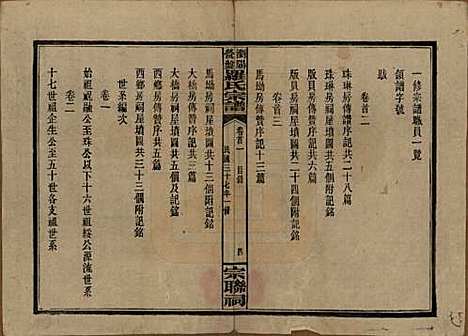 一修宗譜職員一覽
領譜字號
跋
卷首二
珠琳房傳贊序記共二十八篇
珠琳房祠屋墳圖共三十三個附記銘
版貝房傳贊序記共六篇
版貝房祠屋墳圖共二十四個附記銘
卷首三
馬坳房傳贊序記十三篇
瀏陽
攸鄉羅氏宗譜
卷首一
目錄
民國三十七年一修
宗聯祠
馬坳房祠屋墳圖共十三個附記銘
大橋房傳贊序記共三篇
大橋房祠屋墳圖共五個及記銘
西鄉房傳贊序記共五篇
西鄉房祠屋墳圖共三十三個附記銘
世系編次
卷一
始祖祝融公至珠公以下十六世祖綏公源流世系
卷二
十七世祖企生公至五十世各支祖世系